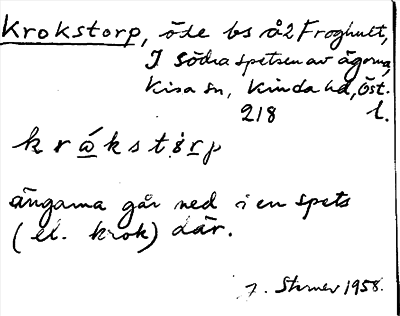 Krokstorp, öde bs å2 Froghult,
I södra spetsen av ägorna,
Kisa sn, Kinda hd, Öst.
218 l.
k r á k s t ò r p
ängarna går ned i en spets
(el. krok) där.
1958.